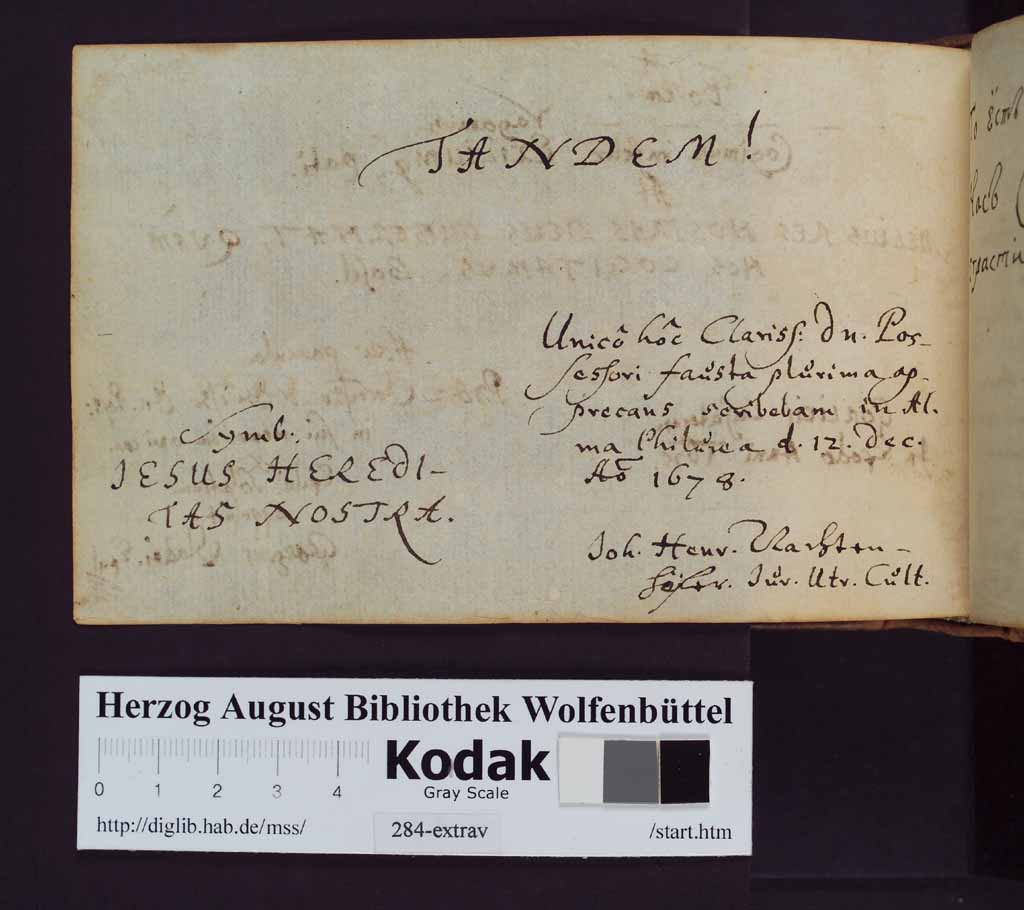 TANDEM!
Unicô hôc Clariss: Dn. Pos-
sessori fausta plurima ap-
precans scribebam in Al-
ma Philurea d. 12. Dec.
Aõ 1678.
Symb.
JESUS HEREDI-
TAS NOSTRA.
Joh. Henr.
Jur. Utr. Cult.
Herzog August Bibliothek Wolfenbüttel
0 1 2 3 4
Kodak
Gray Scale
http://diglib.hab.de/mss/
284-extrav
/start.htm